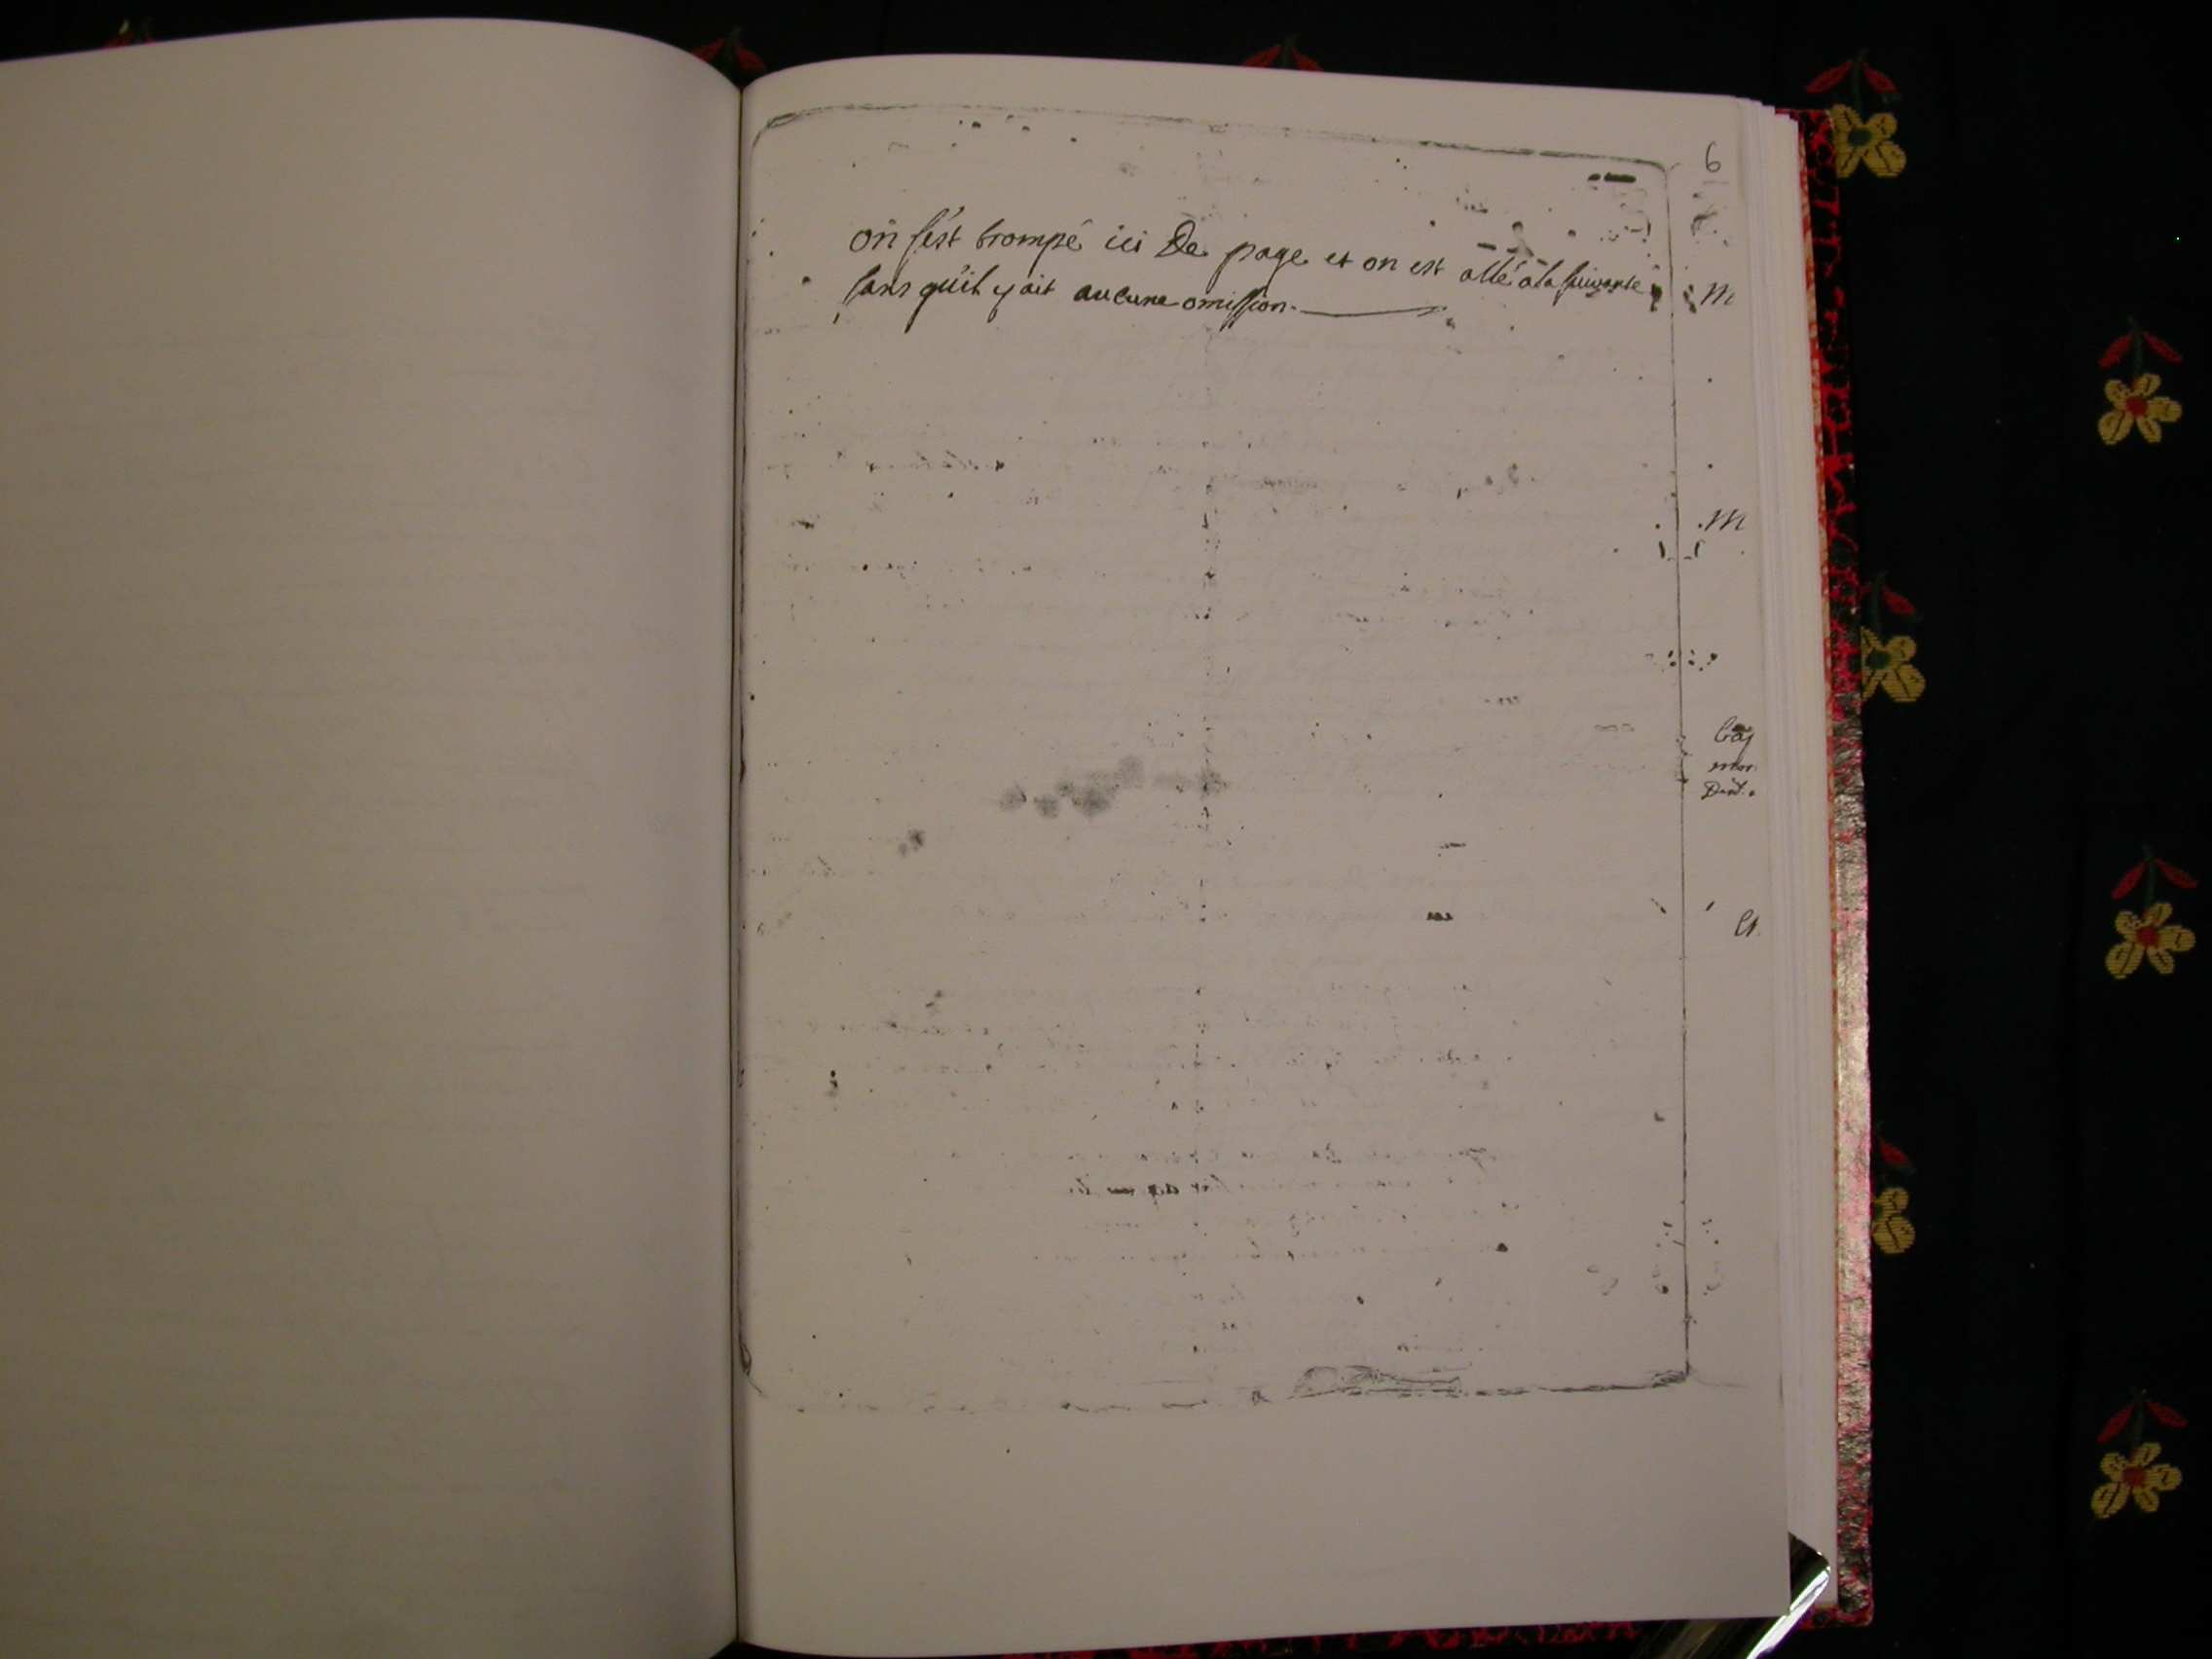 6
on s'est trompé ici De page et on est allé a la suivante
sans qu'il y ait aucune omission.
M
M